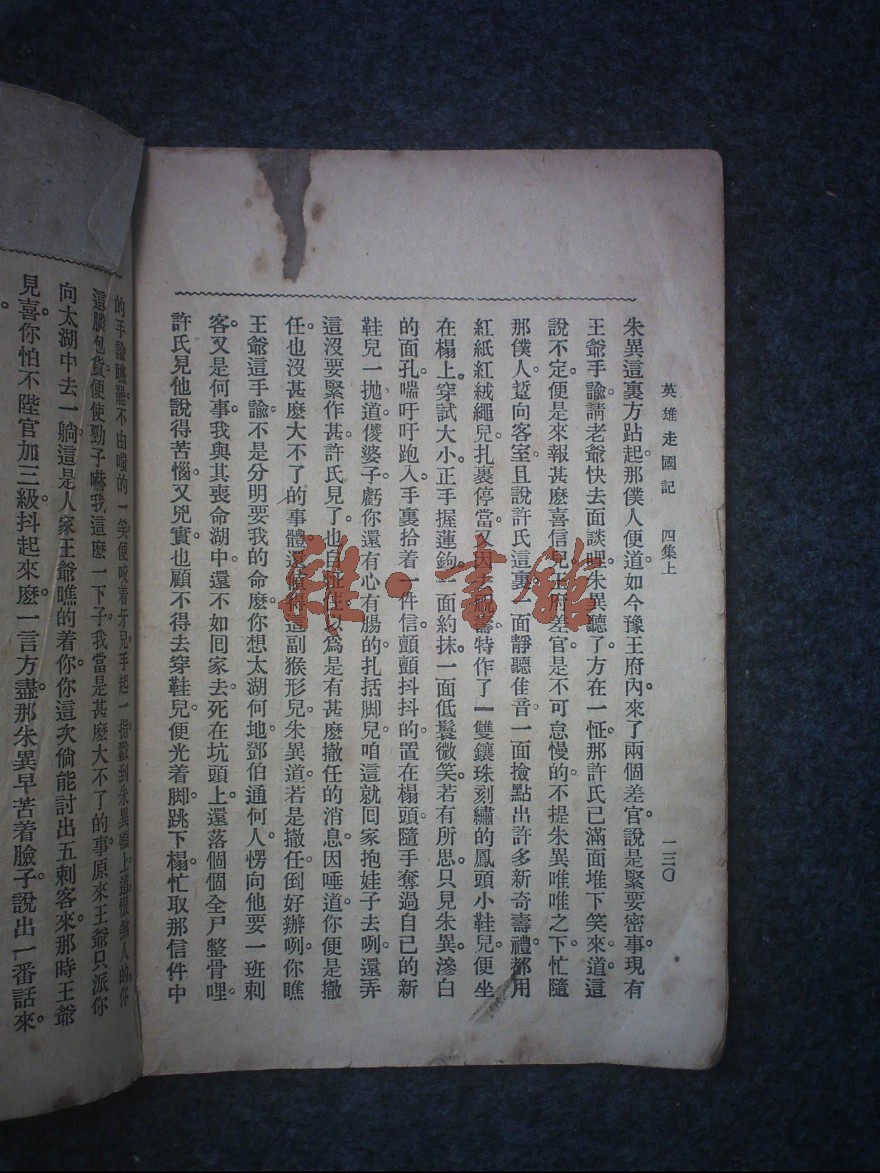 英雄走國記　四集上　一三〇
朱異這裏方跕起。那僕人便道如今豫王府內來了兩個差官。說是緊要密事。現有
王爺手諭。請老爺快去面談哩。朱異聽了。方在一怔。那許氏已滿面堆下笑來。道這
說不定便是來報甚麽喜信兒。王府差官是不可怠慢的。不提朱異唯唯之下。忙隨
那僕人。踅向客室。且說許氏這裏一面靜聽佳音一面撿點出許多新奇壽禮。都用
紅紙紅絨繩兒扎裹停當。又因去祝壽特作了一雙鑲珠刻繡的鳳頭小鞋兒。便坐
在榻上。穿試大小。正手握蓮鉤。一面約抹一面低鬟微笑。若有所思。只見朱異滲白
的面孔。喘吁吁跑入。手裏拾着一件信。顫顫抖抖的置在榻頭。隨手奪過自已的新
鞋兒一拋道。儍婆子。虧你還有心有腸的。扎括脚兒。咱這就回家抱娃子去咧。還弄
這沒要緊作甚。許氏見了。也自以爲是有甚麽撤任的消息。因唾道。你便是撤
任也沒甚麽大不了的事體。還值得這副猴形兒。朱異道。若是撤任倒好辦咧。你瞧
王爺這手諭。不是分明要我的命麽。你想太湖何地。鄧伯通何人。愣向他要一班刺
客。又是何事。我與其喪命湖中。還不如回家去。死在坑頭上。還落個個全尸整骨哩。
許氏見他說得苦惱。又兇實。也顧不得去穿鞋兒。便光着脚。跳下榻。忙取那信件中
的手諭瞧罷。不由嗤的一笑。便咬着牙兒。手起一指。戳到朱異額上道。恨煞人的
這膿包貨。便使勁子嚇我這麽一下子。我當是甚麽大不了的事。原來王爺只派你
向太湖中去一躺。這是人家王爺瞧的着你。你這次倘能討出五刺客來。那時王爺
見喜。你怕不陞官加三級抖起來麽。一言方盡。那朱異早苦着臉子。說出一番話來。
雜·書館